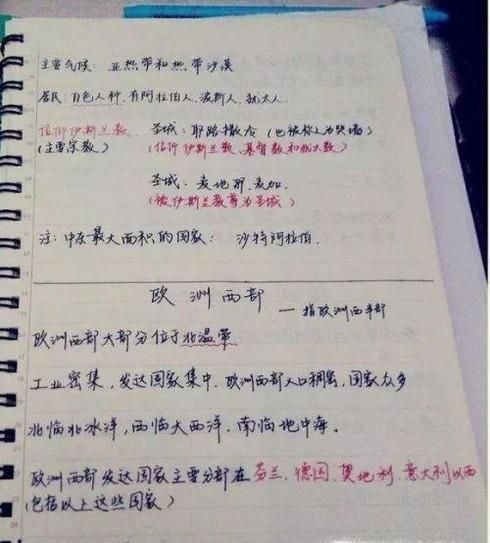 主要气候：亚热带和热带沙漠
居民：白色人种，有阿拉伯人，波斯人，犹太人。
信仰伊斯兰教 圣城：耶路撒冷（也被称之为哭墙）
（主要宗教） （信仰伊斯兰教，基督教和犹太教）
圣城：麦地那，麦加。
（被伊斯兰教尊为圣城）
注：中东最大面积的国家：沙特阿拉伯.
欧洲西部
—指欧洲西半部
欧洲西部大部分位于北温带
工业密集，发达国家集中，欧洲西部人口稠密，国家众多
北临北冰洋，西临大西洋，南临地中海。
欧洲西部发达国家主要分部在芬兰，德国，奥地利，意大利以西
（包括以上这些国家）